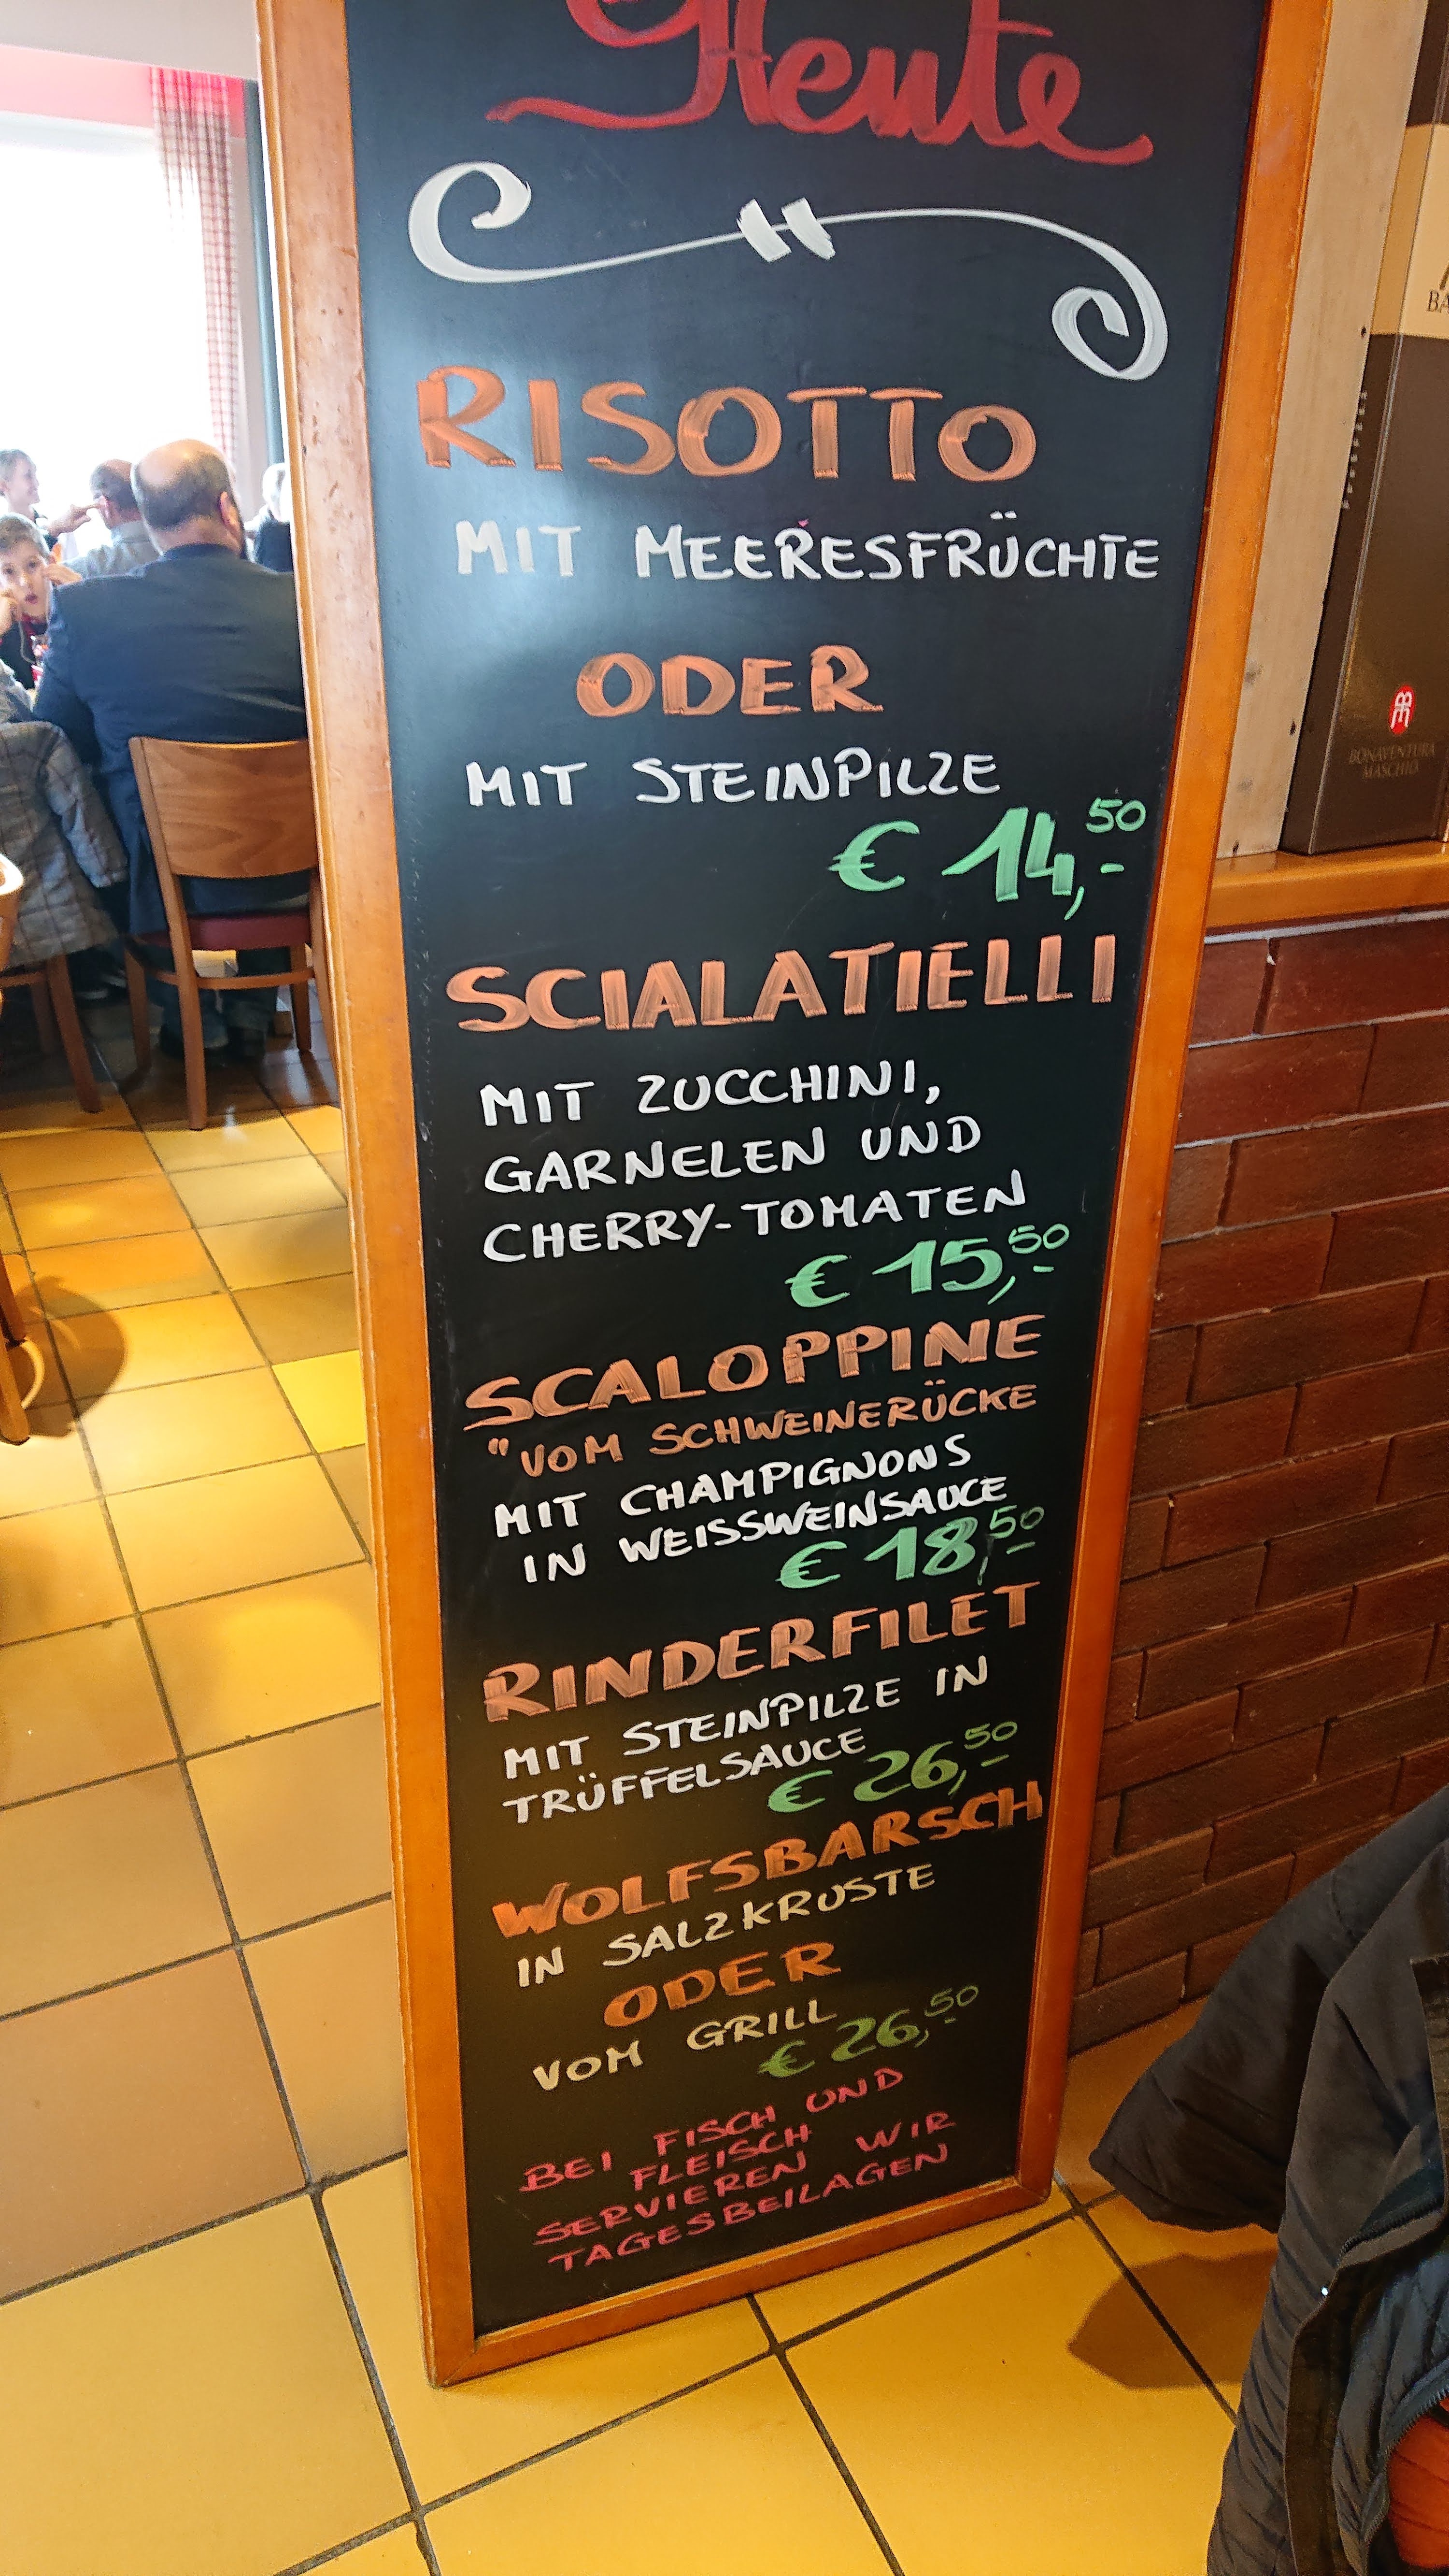 Heute
RISOTTO
MIT MEERESFRÜCHTE
ODER
MIT STEINPILZE
€ 14,50
SCIALATIELLI
MIT ZUCCHINI,
GARNELEN UND
CHERRY-TOMATEN
€ 15,50
SCALOPPINE
"VOM SCHWEINERÜCKE
MIT CHAMPIGNONS
IN WEISSWEINSAUCE
€ 18,50
RINDERFILET
MIT STEINPILZE IN
TRÜFFELSAUCE
€ 26,50
WOLFSBARSCH
IN SALZKRUSTE
ODER
VOM GRILL
€ 26,50
BEI FISCH UND
FLEISCH
SERVIEREN WIR
TAGESBEILAGEN
BONAVENTURA
MASCHIO